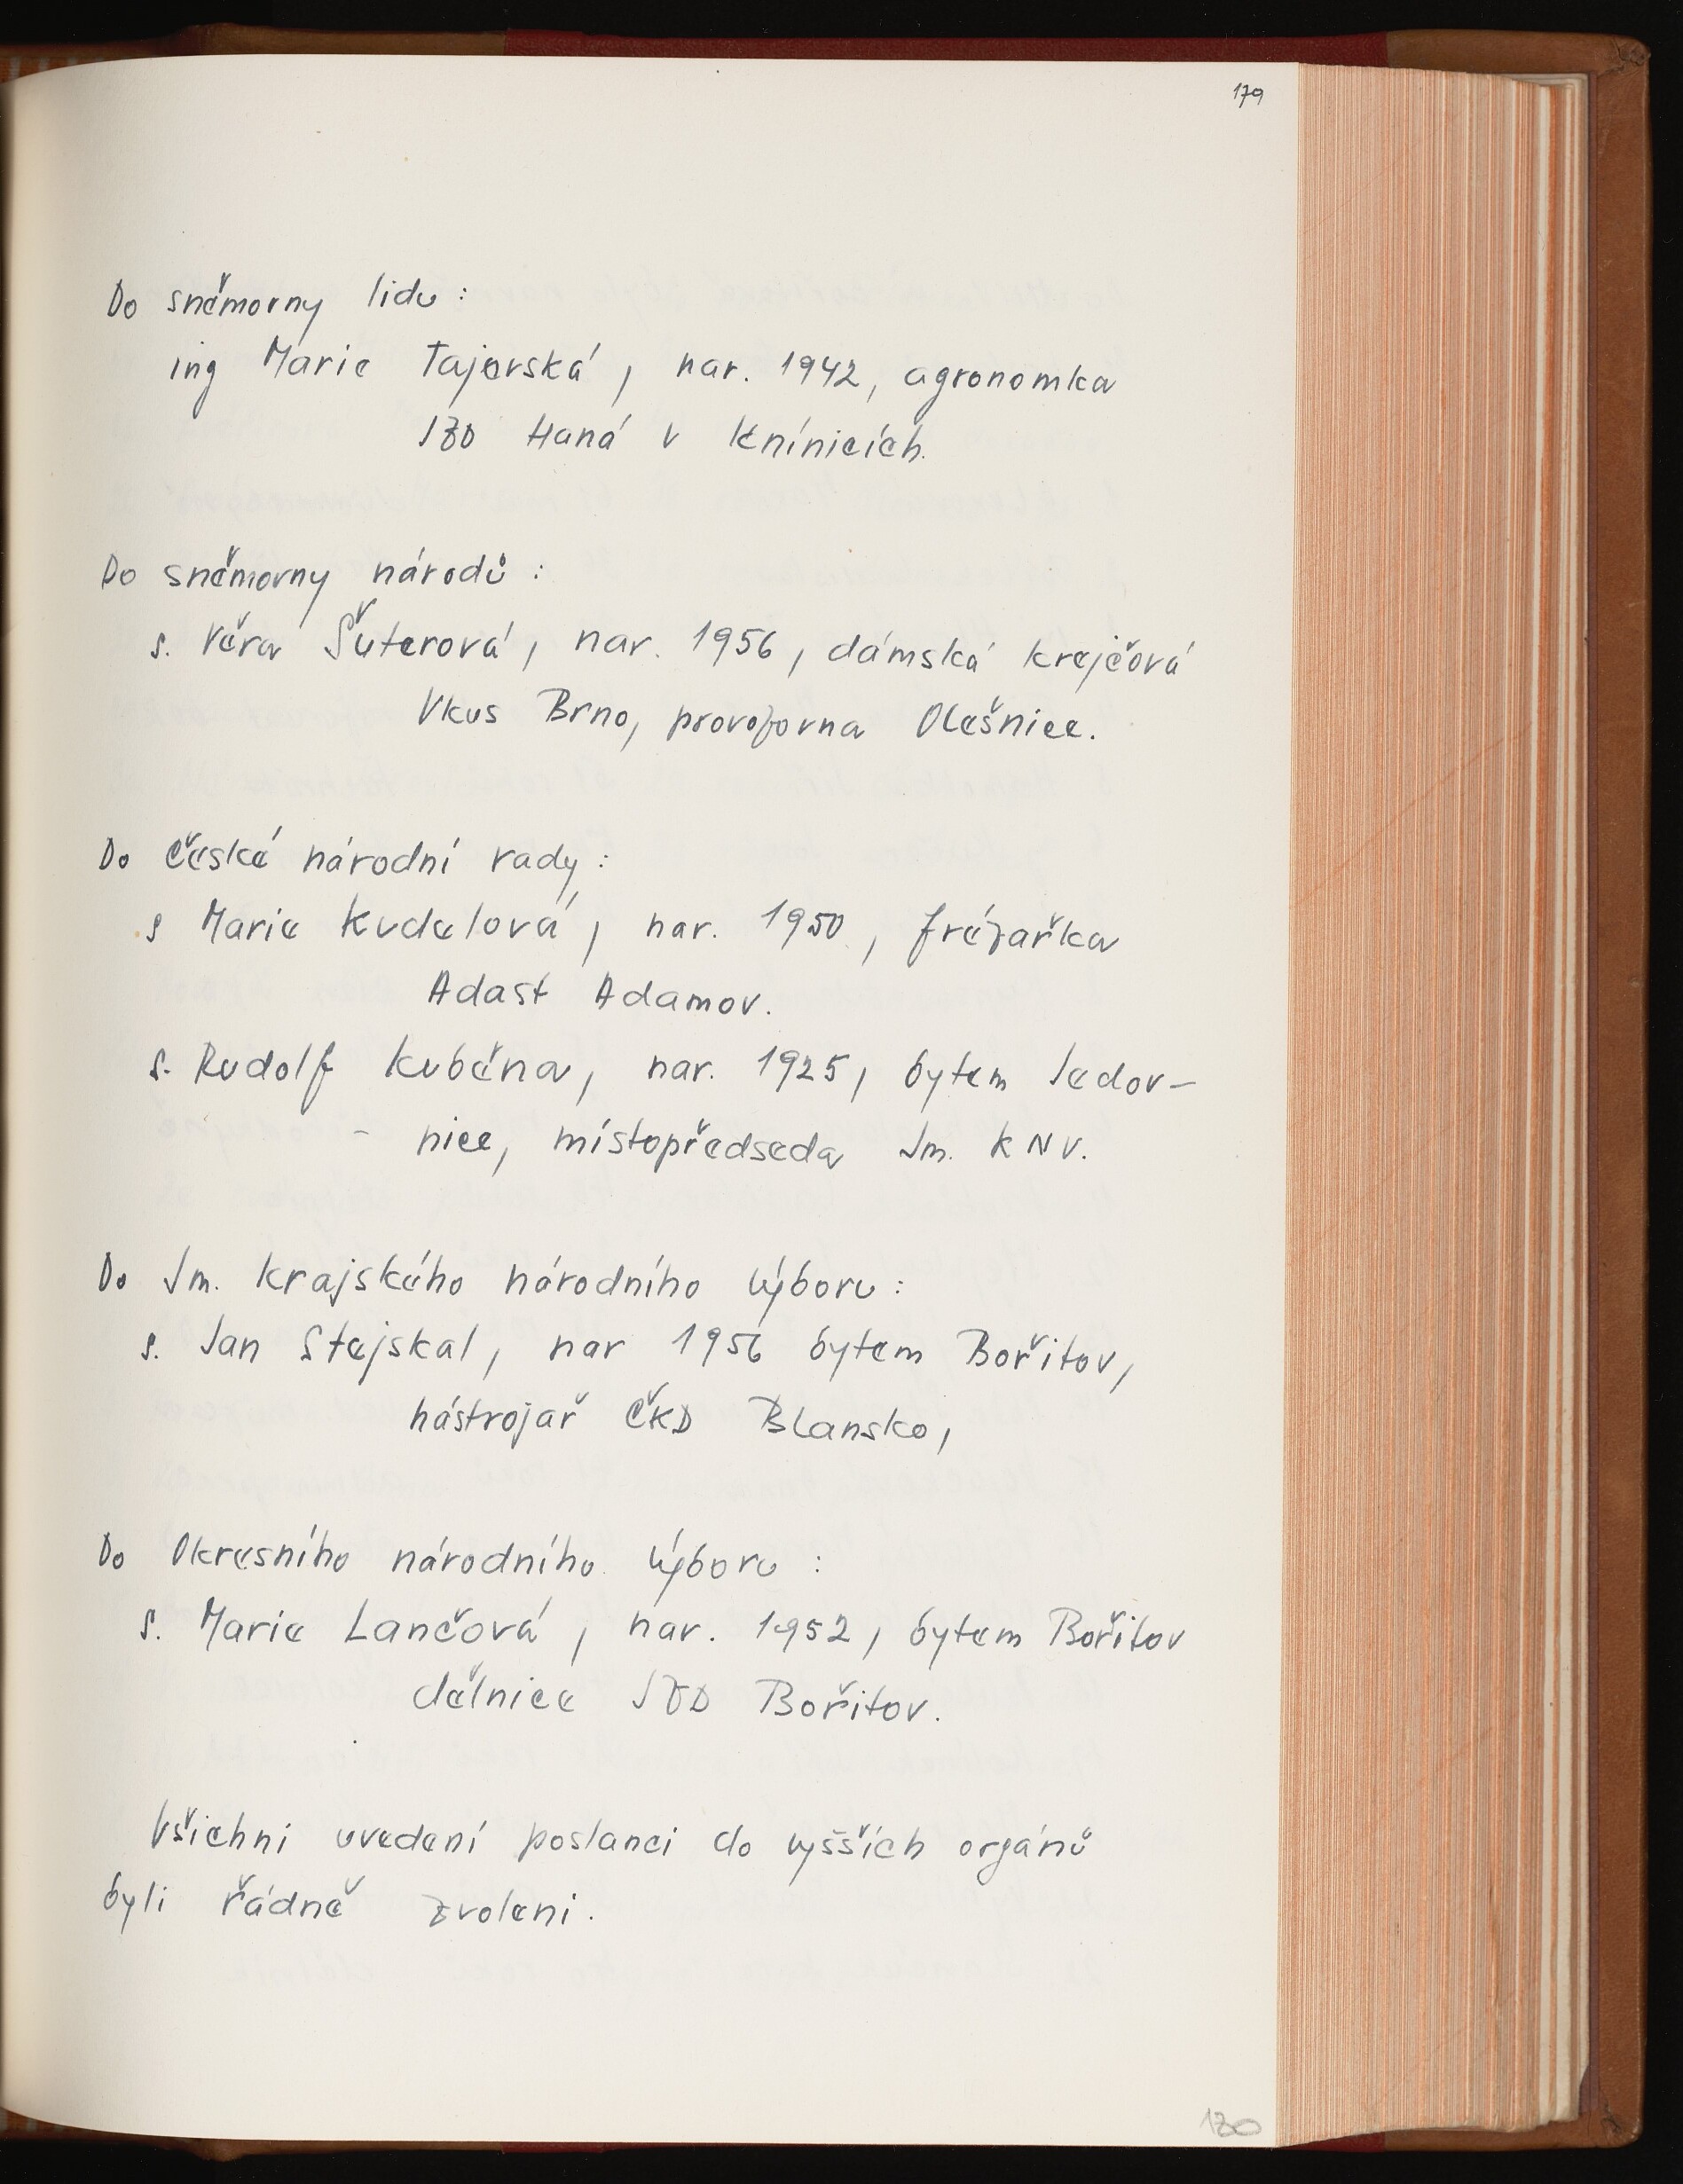 179
Do sněmorny lidu :
ing Marie Tajovská, nar. 1942, agronomka
JZD Haná v Knínicích.
Do sněmovny národů :
s. Věra Šuterová, nar. 1956, dámská krejčová
Vkus Brno, provozovna Olešnice.
Do české národní rady :
s Marie Kudelová, nar. 1950, frézařka
Adast Adamov.
s. Rudolf Kuběna, nar. 1925, bytem Jedov-
- nice, místopředseda Jm. KNV.
Do Jm. krajského národního výboru :
s. Jan Stejskal, nar 1956 bytem Bořitov,
nástrojař ČKD Blansko,
Do Okresního národního výboru :
s. Marie Lančová, nar. 1952, bytem Bořitov
dělnice JZD Bořitov.
Všichni uvedení poslanci do vyšších orgánů
byli řádně zvoleni.
180